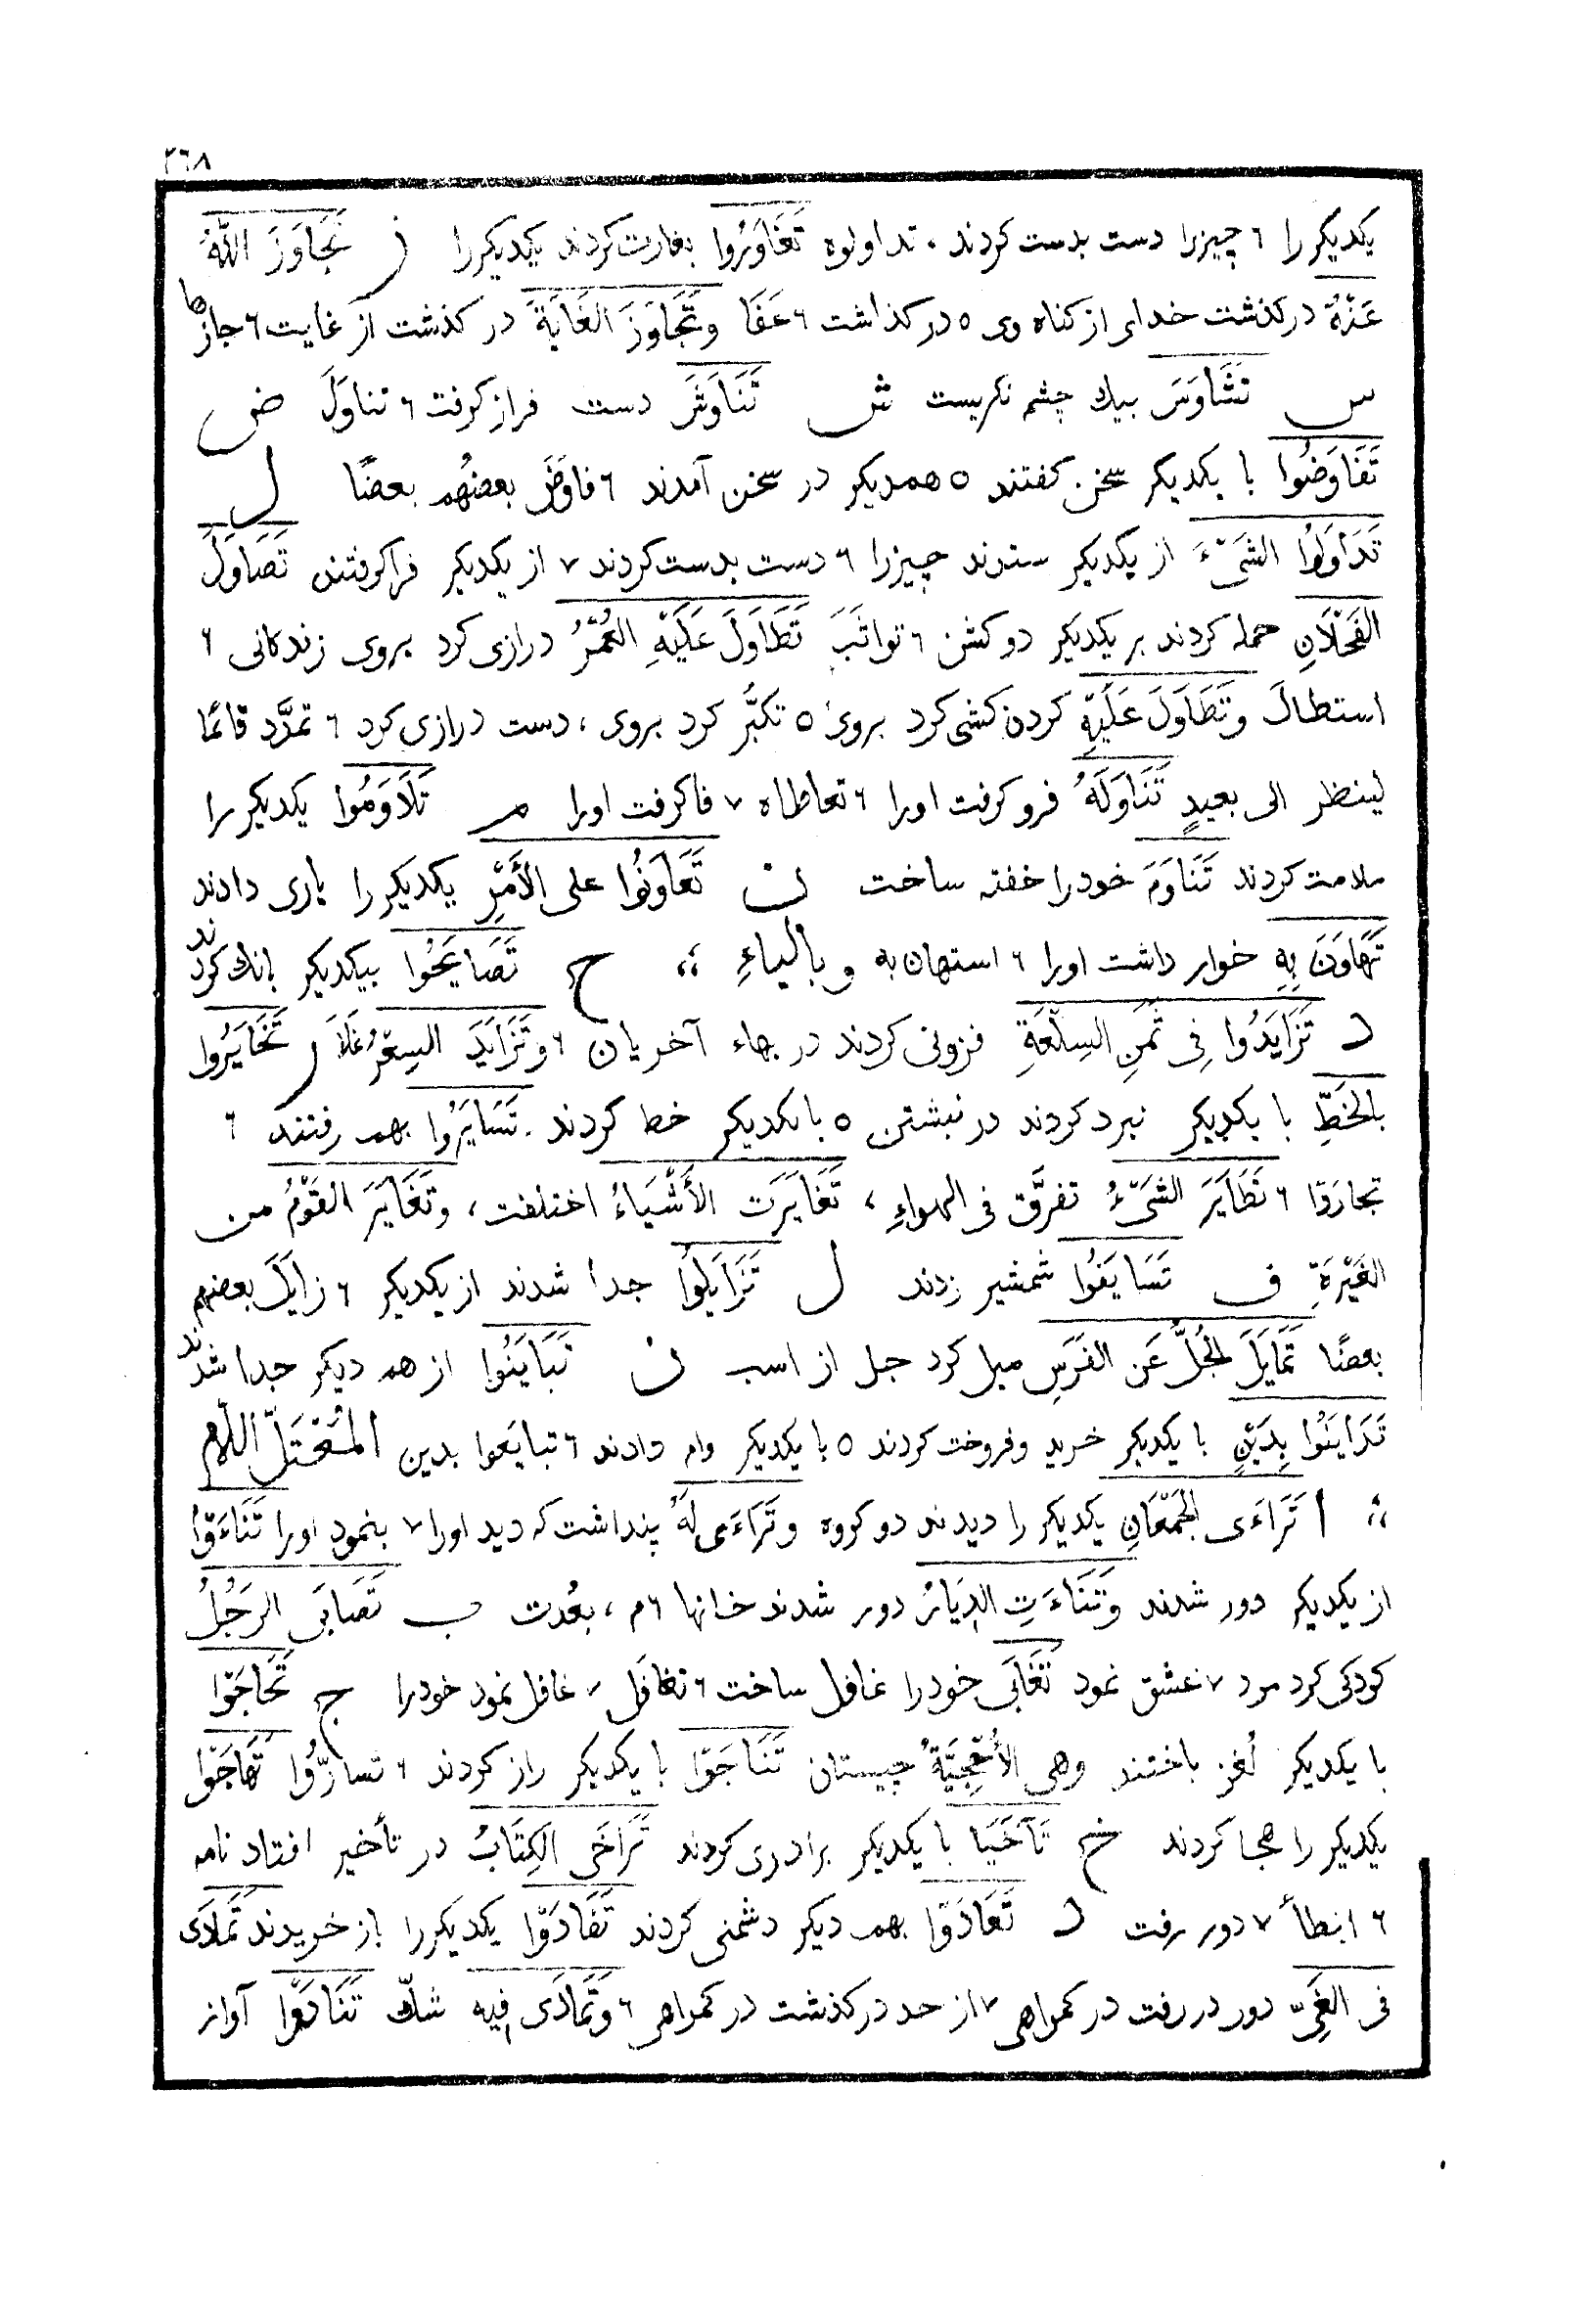 ٣٦٨
یکدیکر را ٦ چیزرا دست بدست کردند ، تداولوه تَغَاوَرُوا بغارت کردند یکدیکررا ز تَجَاوَزَ اللّٰهُ
عَنْهُ درکذشت خدای از کناه وی ٥ درکذاشت ٦ عَفَا وتَجَاوَزَ الغَايَةَ در کذشت از غایت ٦ جازها
س تَشَاوَسَ بیك چشم نکریست ش تَنَاوَشَ دست فراز کرفت ٦ تناوَلَ ض
تَفَاوَضُوا با یکدیکر سخن کفتند ٥ همدیکر در سخن آمدند ٦ فاوَضَ بعضُهم بعضًا ل
تَدَاوَلُوا الشَىْءَ از یکدیکر ستدند چیزرا ٦ دست بدست کردند ٧ از یکدیکر فراکرفتند تَصَاوَلَ
الفَحْلَانِ حمله کردند بر یکدیکر دو کشن ٦ تواثَبَ تَطَاوَلَ عَلَيْهِ العُمْرُ درازی کرد بروی زندکانی ٦
استطالَ وتَطَاوَلَ عَلَيْهِ کردن کشی کرد بروی ٥ تکبُّر کرد بروی ، دست درازی کرد ٦ تمدَّد قائمًا
لینظر الی بعیدٍ تَنَاوَلَهُ فرو کرفت اورا ٦ تعاطاه ٧ فاکرفت اورا م تَلَاوَمُوا یکدیکر را
ملامت کردند تَنَاوَمَ خودرا خفته ساخت ن تَعَاوَنُوا علی الأَمْرِ یکدیکر را یاری دادند
تَهَاوَنَ بِهِ خوار داشت اورا ٦ استهان به وبالیاءِ ؞ ح تَصَايَحُوا بیکدیکر بانك کردند
د تَزَايَدُوا فِى ثَمَنِ السِلْعَةِ فزونی کردند در بهاء آخریان ٦ وتَزَايَدَ السِعْرُ غَلَا ر تَخَايَرُوا
بالخَطِّ با یکدیکر نبرد کردند در نبشتن ٥ با یکدیکر خط کردند . تَسَايَرُوا بهم رفتند ٦
تجارَوْا ٦ تَطَايَرَ الشَىْءُ تفرَّق فی الهواءِ ، تَغَايَرَت الأَشْيَاءُ اختلفت ، وتَغَايَرَ القَوْمُ من
الغَيْرَةِ ف تَسَايَفُوا شمشیر زدند ل تَزَايَلُوا جدا شدند از یکدیکر ٦ زایَلَ بعضهم
بعضًا تَمَايَلَ الجُلُّ عَن الفَرَسِ میل کرد جل از اسب ن تَبَايَنُوا از هم دیکر جدا شدند
تَدَايَنُوا بِدَيْنٍ با یکدیکر خرید وفروخت کردند ٥ با یکدیکر وام دادند ٦ تبایَعوا بدین المُعْتَلّ اللّام
؞ ا تَرَاءَى الجَمْعَانِ یکدیکر را دیدند دو کروه وتَرَاءَى لَهُ پنداشت که دید اورا ٧ بنمود اورا تَنَاءَوْا
از یکدیکر دور شدند وتَنَاءَتِ الدِيَارُ دور شدند خانها ٦ م ، بعُدت ب تَصَابَى الرَجُلُ
کودکی کرد مرد ٧ عشق نمود تَغَابَى خودرا غافل ساخت ٦ تغافَل ٧ غافل نمود خودرا ج تَحَاجَوْا
با یکدیکر لُغز باختند وهی الأُحْجِيَّةُ چیستان تَنَاجَوْا با یکدیکر راز کردند ٦ تسارُّوا تَهَاجَوْا
یکدیکر را هجا کردند خ تَآخَيَا با یکدیکر برادری کردند تَرَاخَى الكِتَابُ در تأخیر افتاد نامه
٦ ابطأ ٧ دور رفت د تَعَادَوْا بهم دیکر دشمنی کردند تَفَادَوْا یکدیکررا باز خریدند تَمَادَى
فی الغَىِّ دور در رفت در کمراهی ٧ از حد درکذشت در کمراهی ٦ وتَمَادَى فيه شكّ تَنَادَوْا آواز